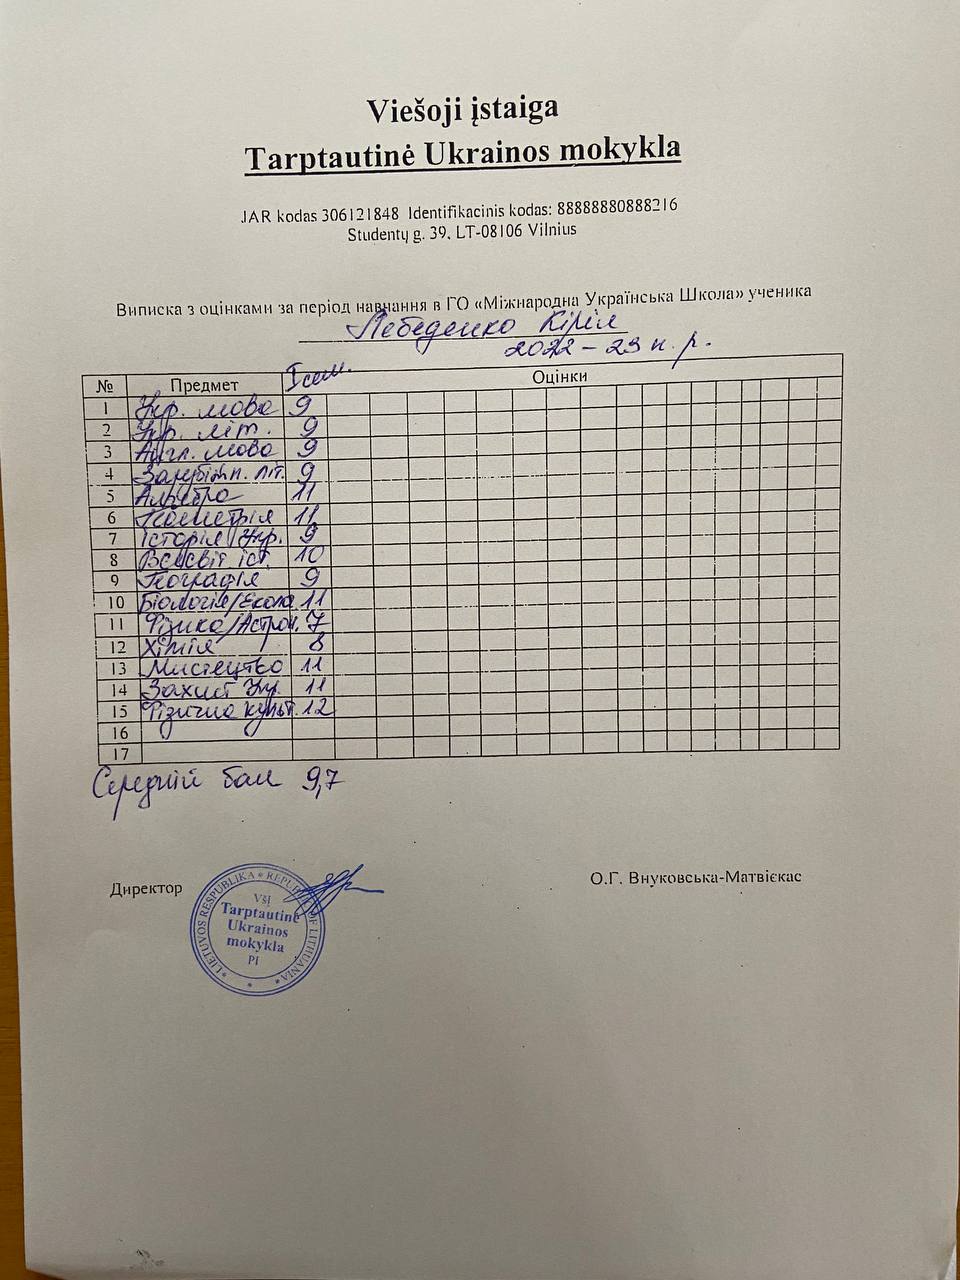 Viešoji įstaiga
Tarptautinė Ukrainos mokykla
JAR kodas 306121848 Identifikacinis kodas: 88888880888216
Studentų g. 39, LT-08106 Vilnius
Виписка з оцінками за період навчання в ГО «Міжнародна Українська Школа» ученика
Лебеденко Кіріл
2022-23 н. р.
№ Предмет І сем. Оцінки
1 Укр. мова 9
2 Укр. літ. 9
3 Англ. мова 9
4 Зарубіжн. літ. 9
5 Алгебра 11
6 Геометрія 11
7 Історія Укр. 9
8 Всесвіт іст. 10
9 Географія 9
10 Біологія/Екола 11
11 Фізика/Астрон. 7
12 Хімія 8
13 Мистецтво 11
14 Захист Укр. 11
15 Фізична культ. 12
16
17
Середній бал 9,7
Директор
О.Г. Внуковська-Матвієкас
LIETUVOS RESPUBLIKA * REPUBLIC OF LITHUANIA *
VšĮ
Tarptautinė
Ukrainos
mokykla
PI